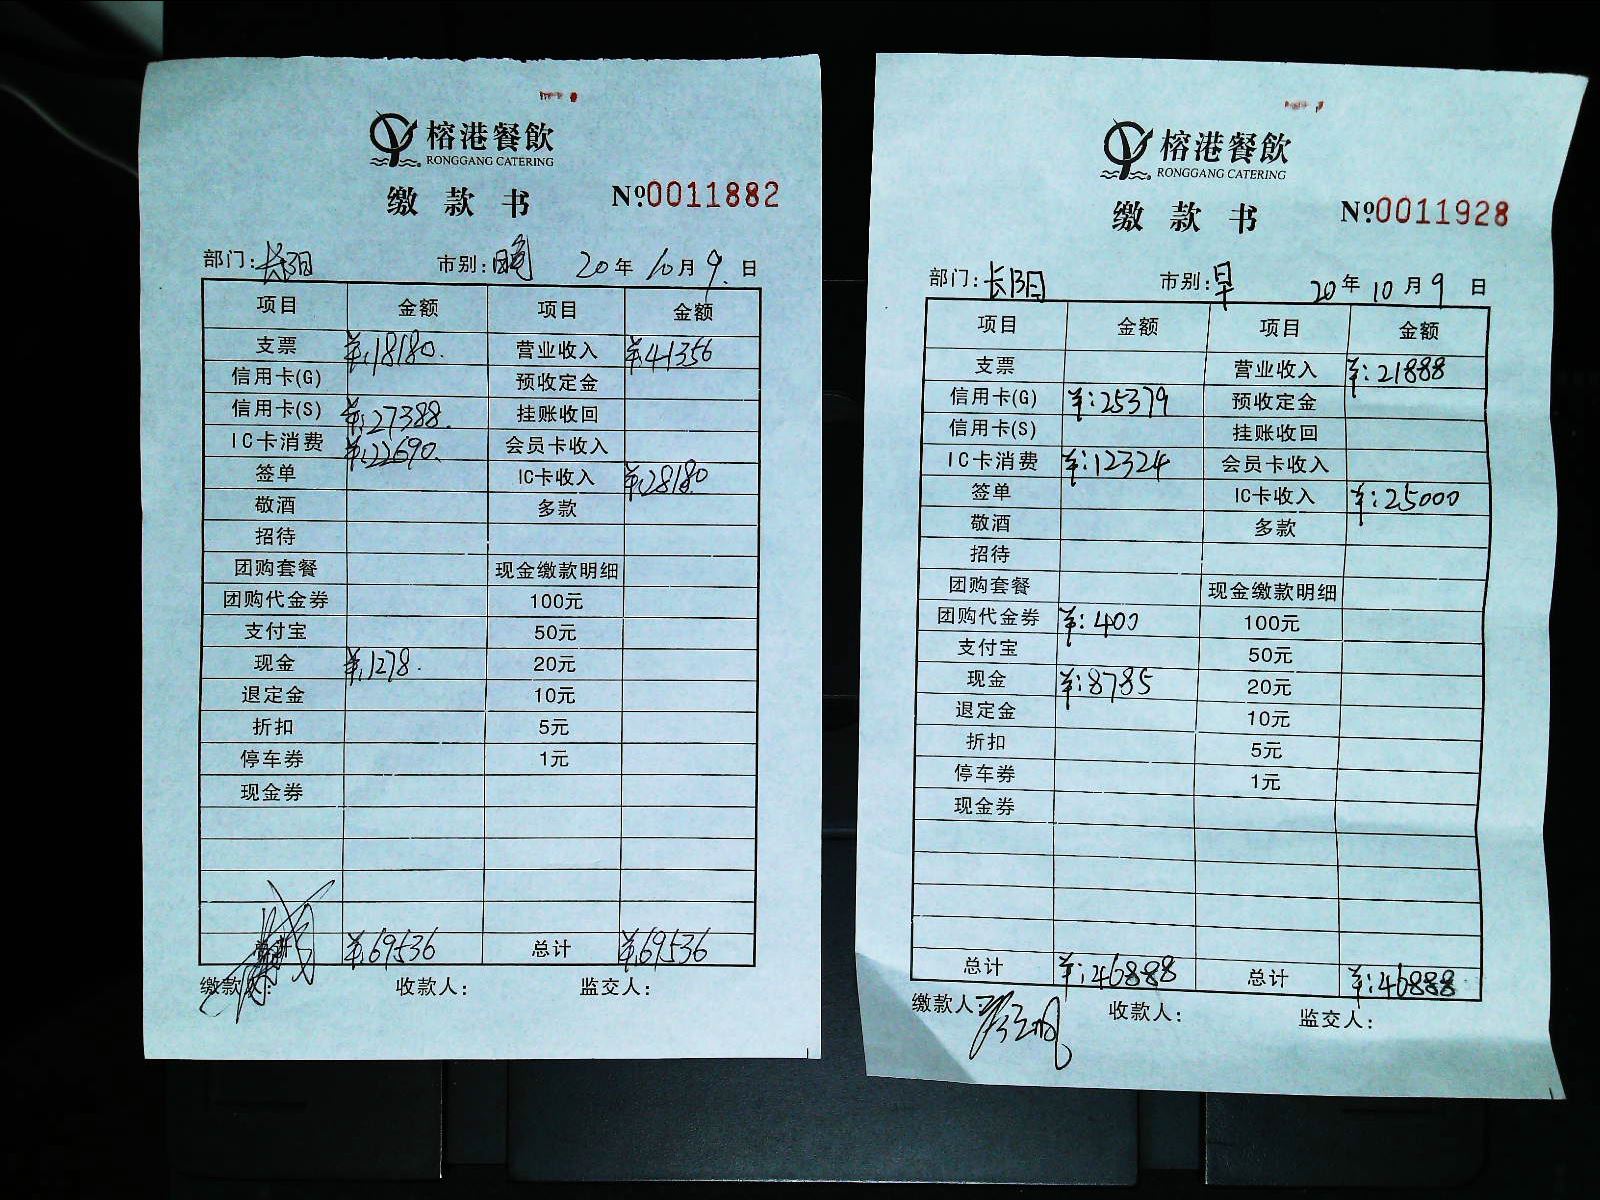 榕港餐飲
RONGGANG CATERING
缴款书
№0011882
部门:长阳 市别:晚 20年10月9日
项目 金额 项目 金额
支票 ¥:18180. 营业收入 ¥:41356
信用卡(G) 预收定金
信用卡(S) ¥:27388. 挂账收回
IC卡消费 ¥:22690. 会员卡收入
签单 IC卡收入 ¥:28180
敬酒 多款
招待
团购套餐 现金缴款明细
团购代金券 100元
支付宝 50元
现金 ¥:1278. 20元
退定金 10元
折扣 5元
停车券 1元
现金券
¥:69536 总计 ¥:69536
缴款人: 收款人: 监交人:
榕港餐飲
RONGGANG CATERING
缴款书
№0011928
部门:长阳 市别:早 20年10月9日
项目 金额 项目 金额
支票 营业收入 ¥:21888
信用卡(G) ¥:25379 预收定金
信用卡(S) 挂账收回
IC卡消费 ¥:12324 会员卡收入
签单 IC卡收入 ¥:25000
敬酒 多款
招待
团购套餐 现金缴款明细
团购代金券 ¥:400 100元
支付宝 50元
现金 ¥:8785 20元
退定金 10元
折扣 5元
停车券 1元
现金券
总计 ¥:46888 总计 ¥:46888
缴款人: 收款人: 监交人: